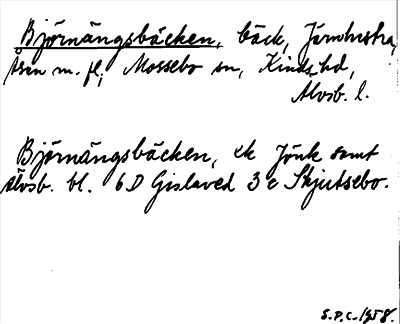 Björnängsbäcken, bäck, Järnhestra,
Åsen m. fl., Mossebo sn, Kinds hd,
Älvsb. l.
Björnängsbäcken, ek Jönk samt
Älvsb. bl. 6D Gislaved 3 e Skjutsebo.
S.P.C. 1958.